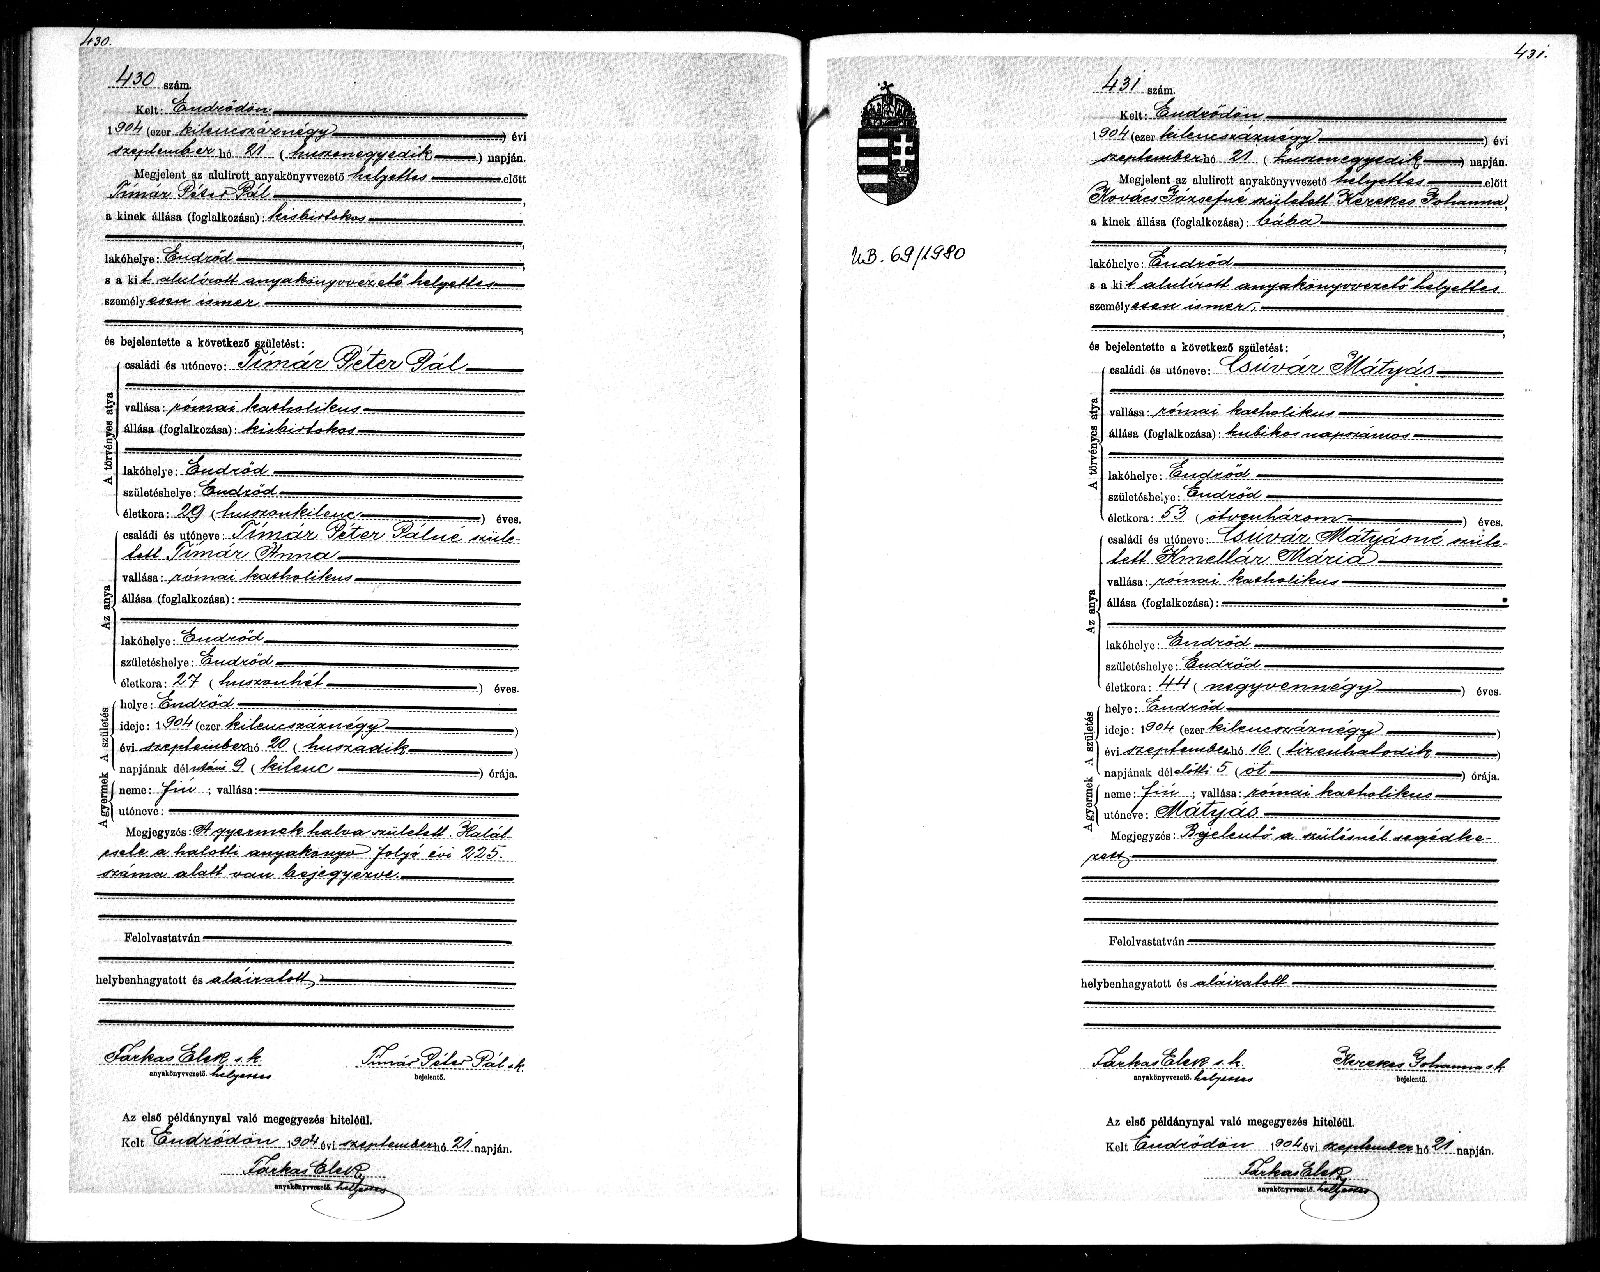 430.
430 szám.
Kelt: Endrődön,
1904 (ezer kilenczszáznégy) évi
szeptember hó 21 (huszonegyedik) napján.
Megjelent az alulirott anyakönyvvezető helyettes előtt
Tímár Péter Pál
a kinek állása (foglalkozása): kisbirtokos
lakóhelye: Endrőd
s a kit alulírott anyakönyvvezető helyettes
személyesen ismer
és bejelentette a következő születést:
A törvényes atya
családi és utóneve: Tímár Péter Pál
vallása: római katholikus
állása (foglalkozása): kisbirtokos
lakóhelye: Endrőd
születéshelye: Endrőd
életkora: 29 (huszonkilenc) éves.
Az anya
családi és utóneve: Tímár Péter Pálné szüle-
tett Tímár Anna
vallása: római katholikus
állása (foglalkozása):
lakóhelye: Endrőd
születéshelye: Endrőd
életkora: 27 (huszonhét) éves.
A születés
helye: Endrőd
ideje: 1904 (ezer kilencszáznégy)
évi szeptember hó 20 (huszadik)
napjának délutáni 9 (kilenc) órája.
A gyermek
neme: fiú; vallása:
utóneve:
Megjegyzés: A gyermek halva született. Halál-
esete a halotti anyakönyv folyó évi 225.
száma alatt van bejegyezve.
Felolvastatván
helybenhagyatott és aláiratott,
Farkas Elek s.k. Tímár Péter Pál s.k.
anyakönyvvezető. helyettes bejelentő.
Az első példánynyal való megegyezés hiteléül.
Kelt Endrődön 1904 évi szeptember hó 21 napján.
Farkas Elek
anyakönyvvezető helyettes
431.
UB. 69/1980
431 szám.
Kelt: Endrődön
1904 (ezer kilencszáznégy) évi
szeptember hó 21 (huszonegyedik) napján.
Megjelent az alulirott anyakönyvvezető helyettes előtt
Kovács Józsefné született Kerekes Johanna,
a kinek állása (foglalkozása): bába
lakóhelye: Endrőd
s a kit alulírott anyakönyvvezető helyettes
személyesen ismer,
és bejelentette a következő születést:
A törvényes atya
családi és utóneve: Csúvár Mátyás
vallása: római katholikus
állása (foglalkozása): kubikos napszámos
lakóhelye: Endrőd
születéshelye: Endrőd
életkora: 53 (ötvenhárom) éves.
Az anya
családi és utóneve: Csúvár Mátyásné szüle-
tett Kmellár Mária
vallása: római katholikus
állása (foglalkozása):
lakóhelye: Endrőd
születéshelye: Endrőd
életkora: 44 (negyvennégy) éves.
A születés
helye: Endrőd
ideje: 1904 (ezer kilencszáznégy)
évi szeptember hó 16 (tizenhatodik)
napjának délelőtti 5 (öt) órája.
A gyermek
neme: fiú; vallása: római katholikus
utóneve: Mátyás
Megjegyzés: Bejelentő a szülésnél segédke-
zett
Felolvastatván
helybenhagyatott és aláiratott
Farkas Elek s.k. Kerekes Johanna s.k
anyakönyvvezető. helyettes bejelentő.
Az első példánynyal való megegyezés hiteléül.
Kelt Endrődön 1904 évi szeptember hó 21 napján.
Farkas Elek
anyakönyvvezető helyettes